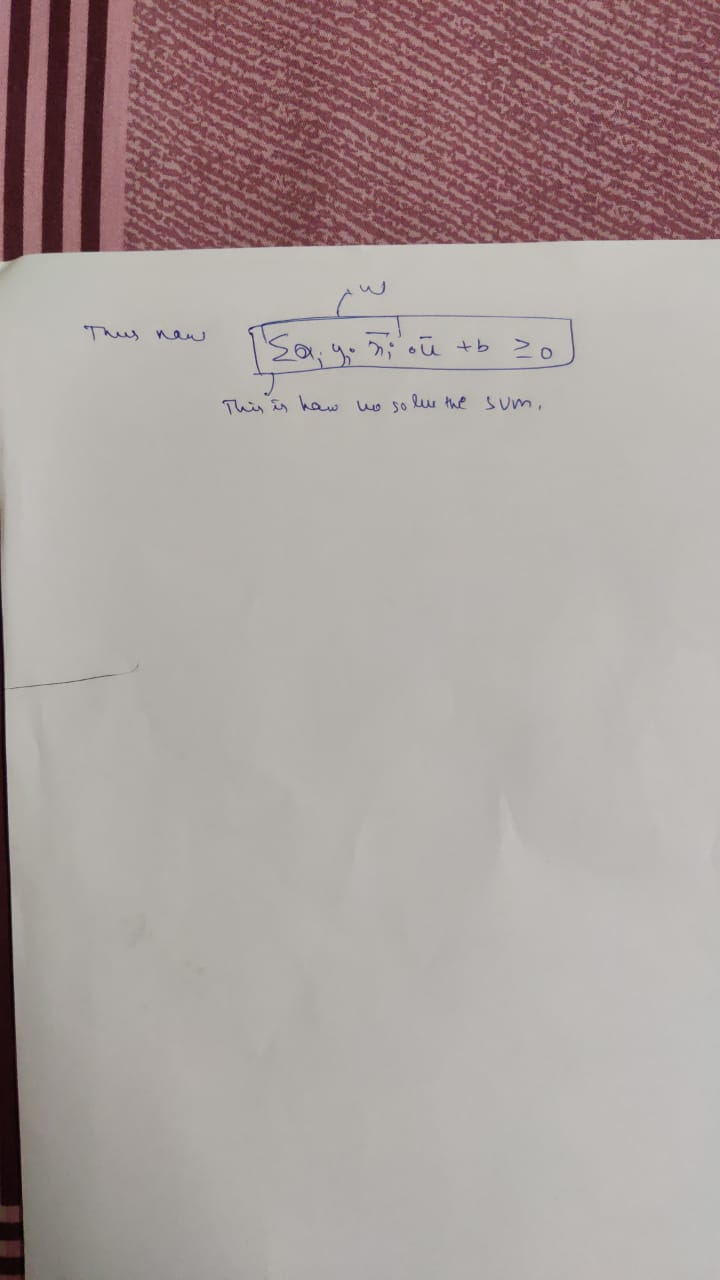 w
Thus now Σαᵢ yᵢ x̄ᵢ · ū + b ≥ 0
This is how we solve the sum.